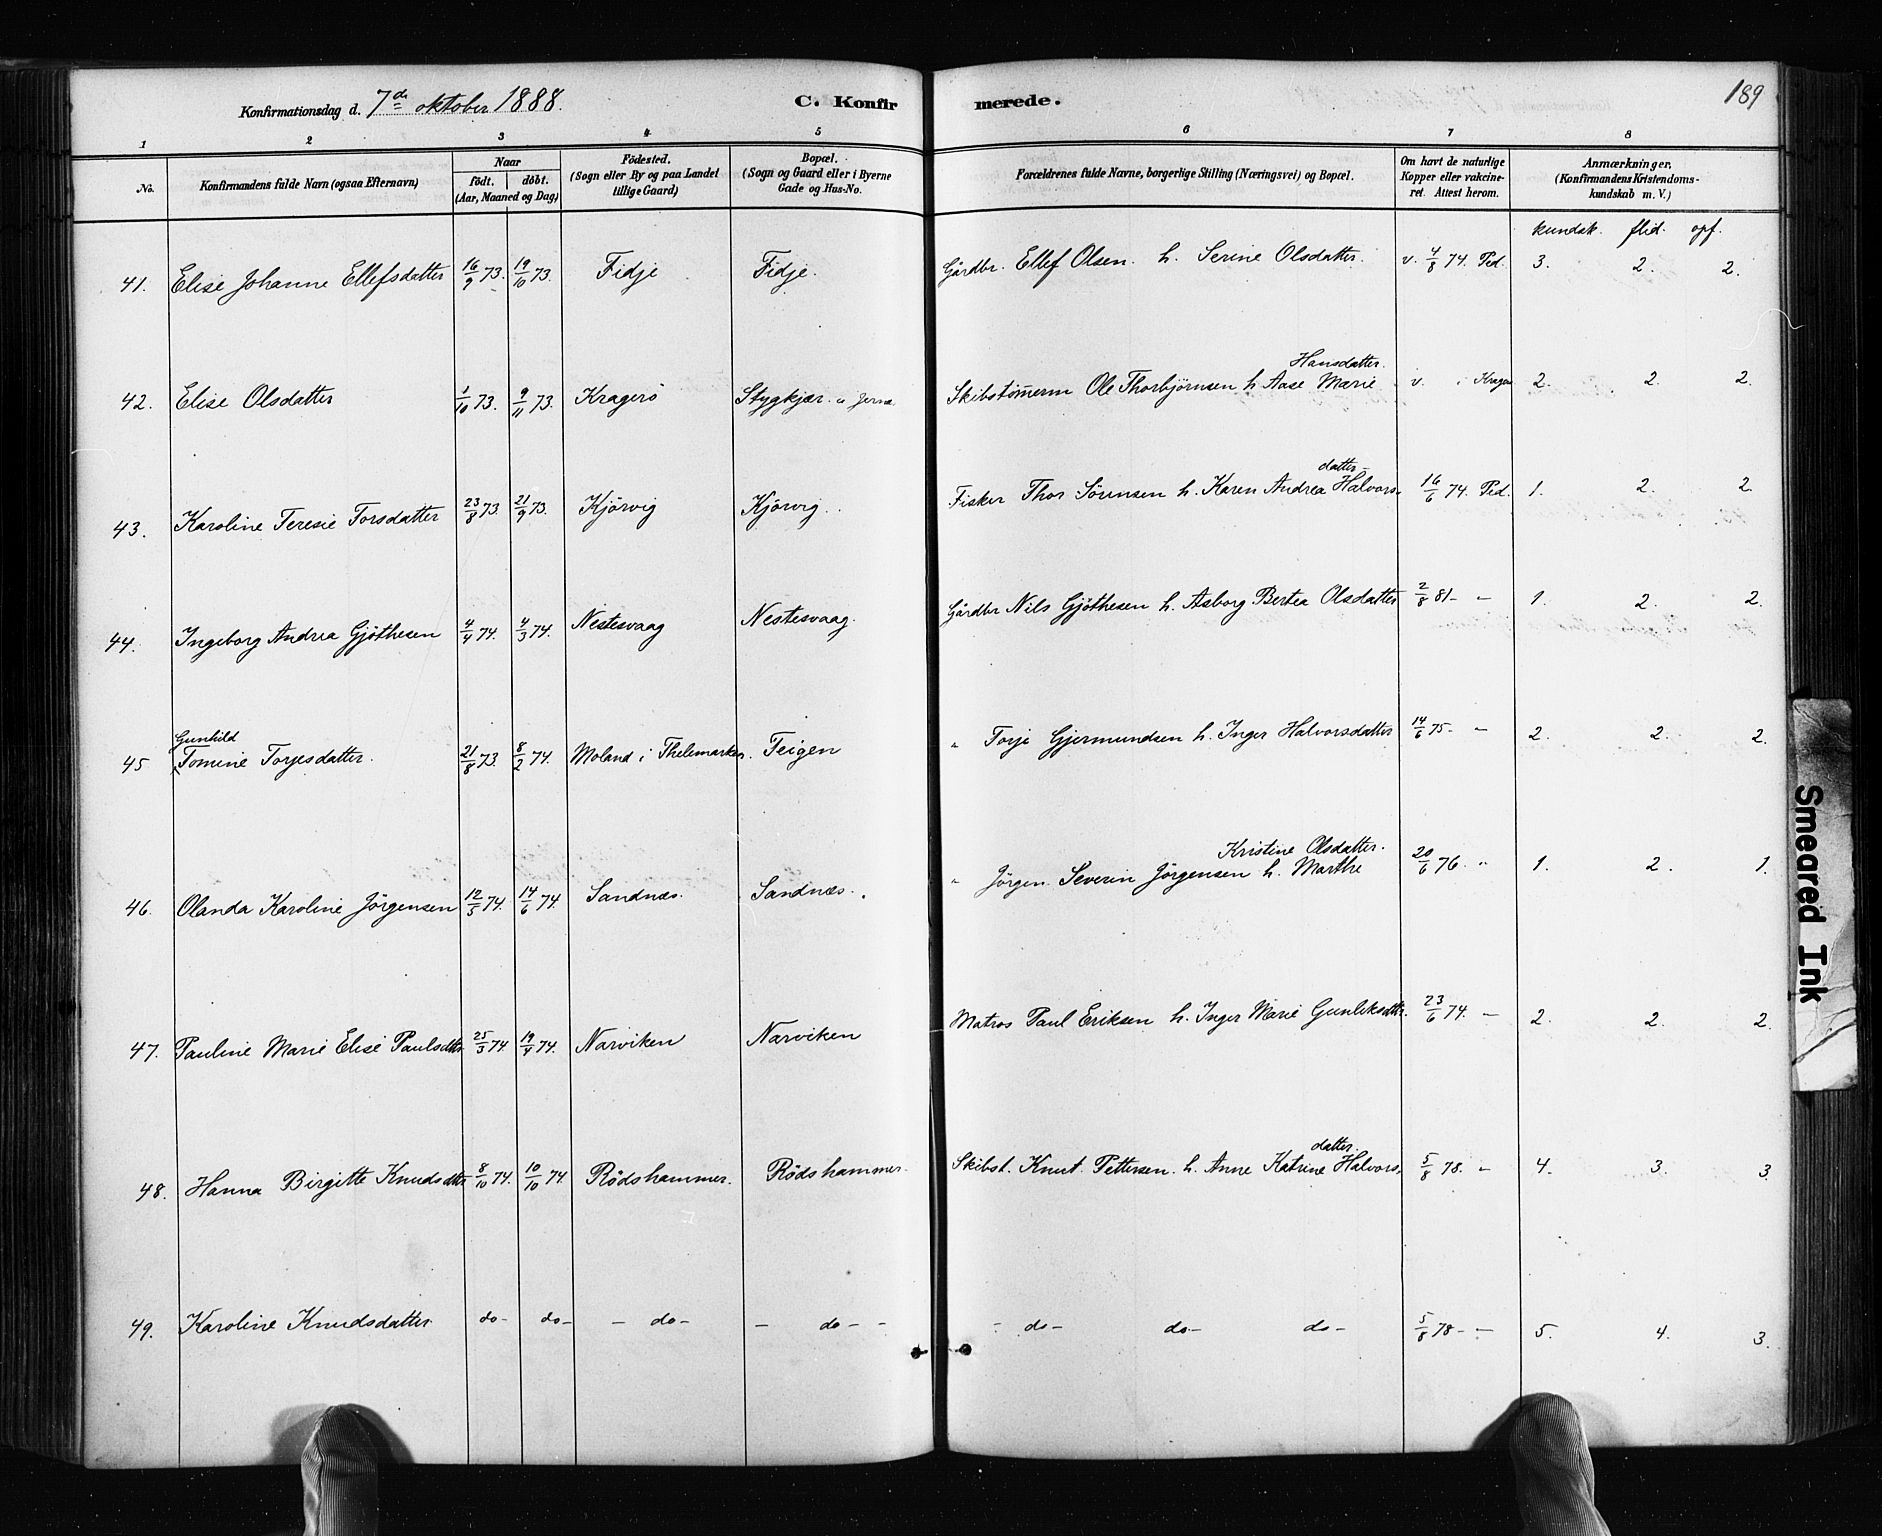 Konfirmationsdag d. 7de oktober 1888. C. Konfirmerede. 189
1 2 3 4 5 6 7 8
No. Konfirmandens fulde Navn (ogsaa Efternavn) Naar født. døbt. (Aar, Maaned og Dag) Fødested. (Sogn eller By og paa Landet tillige Gaard) Bopæl. (Sogn og Gaard eller i Byerne Gade og Hus-No. Forældrenes fulde Navne, borgerlige Stilling (Næringsvei) og Bopæl. Om havt de naturlige Kopper eller vakcineret. Attest herom. Anmærkninger. (Konfirmandens Kristendomskundskab m. V.)
kundsk. flid. opf.
41. Elise Johanne Ellefsdatter 16/9 73. 19/10 73. Fidje Fidje. Gårdbr. Ellef Olsen. h. Serine Olsdatter. v. 4/8 74. Ped. 3. 2. 2.
Hansdatter.
42. Elise Olsdatter 1/10 73. 9/11 73. Kragerö Stygkjær. Skibstömerm Ole Thorbjörnsen h. Aase Marie v. i Kragerö 2. 2. 2.
datter
43. Karoline Teresie Torsdatter 23/8 73. 21/9 73. Kjörvig Kjörvig. Fisker Thor Sörensen h. Karen Andrea Halvors- 16/6 74. Ped. 1. 2. 2.
44. Ingeborg Andrea Gjöthesen 4/4 74. 4/3 74. Nestesvaag Nestesvaag. Gårdbr Nils Gjöthesen h. Asborg Bertea Olsdatter 2/8 81 - - 1. 2. 2.
Gunhild
45 Tomine Torjesdatter. 21/8 73. 8/2 74. Moland i Thelemarken. Feigen " Torje Gjermundsen h. Inger Halvorsdatter 14/6 75 - - 2. 2. 2.
Kristine Olsdatter.
46. Olanda Karoline Jörgensen 12/5 74. 14/6 74. Sandnæs. Sandnæs. " Jörgen Severin Jörgensen h. Marthe 20/6 76. " 1. 2. 1.
47. Pauline Marie Elise Paulsdtr. 25/3 74. 19/4 74. Narviken Narviken Matros Paul Eriksen h. Inger Marie Gunleksdtr. 23/6 74. - 2. 2. 2.
datter.
48. Hanna Birgitte Knudsdtr 8/10 74. 10/10 74 Rödshammer. Rödshammer. Skibst. Knut Pettersen h. Anne Katrine Halvors- 5/8 78. - 4. 3. 3.
49. Karoline Knudsdatter do - do - - do - - do - - - do - do - do - 5/8 78 - - 5. 4. 3.
Smeared Ink